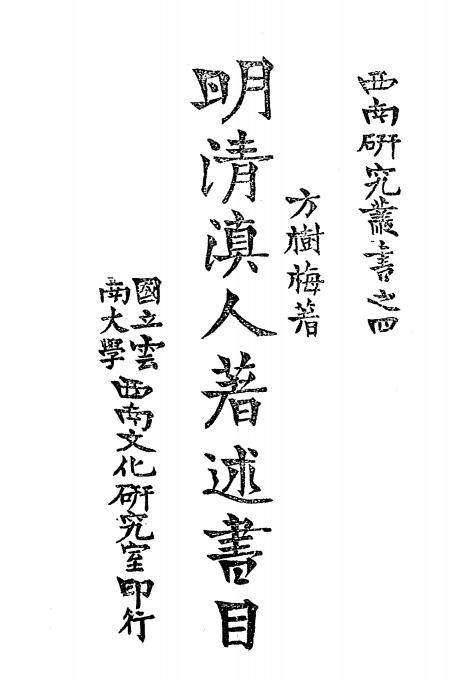 西南研究叢書之四
方樹梅著
明清滇人著述書目
國立雲
南大學
西南文化研究室印行